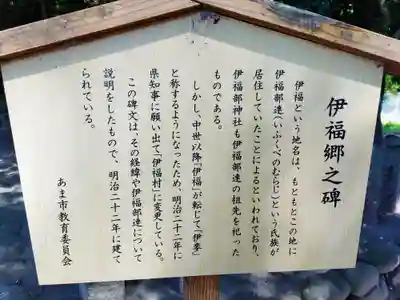 伊福郷之碑
伊福という地名は、もともとこの地に
伊福部連(いふくべのむらじ)という氏族が
居住していたことによるといわれており、
伊福部神社も伊福部連の祖先を祀った
ものである。
しかし、中世以降「伊福」が転じて「伊麥」
と称するようになったため、明治二十二年に
県知事に願い出て「伊福村」に変更している。
この碑文は、その経緯や伊福部連について
説明をしたもので、明治二十二年に建て
られている。
あま市教育委員会